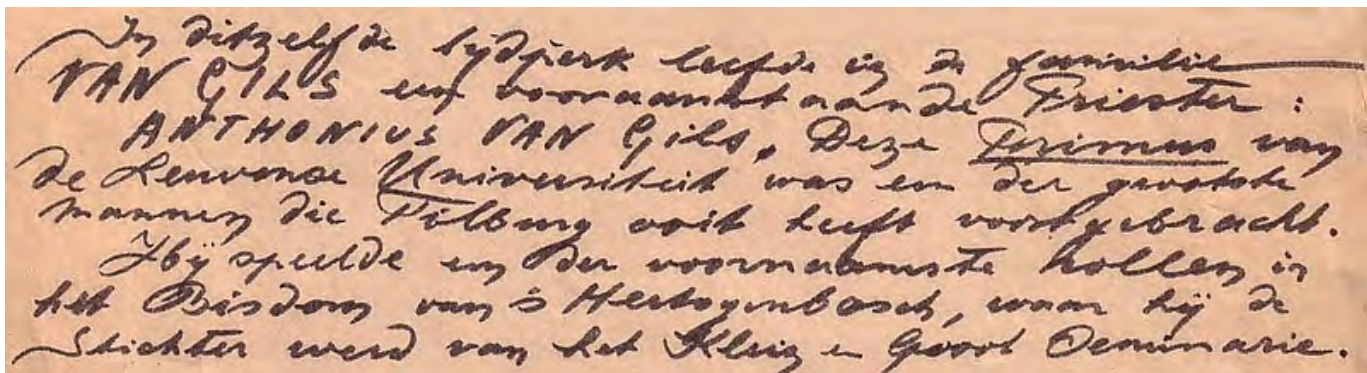 In ditzelfde tijdperk leefde in de familie
VAN GILS een vooraanstaande Priester :
ANTHONIUS VAN Gils. Deze Primus van
de Leuvense Universiteit was een der grootste
mannen die Tilburg ooit heeft voortgebracht.
Hij speelde een der voornaamste Rollen in
het Bisdom van 's Hertogenbosch, waar hij de
Stichter werd van het Klein en Groot Seminarie.